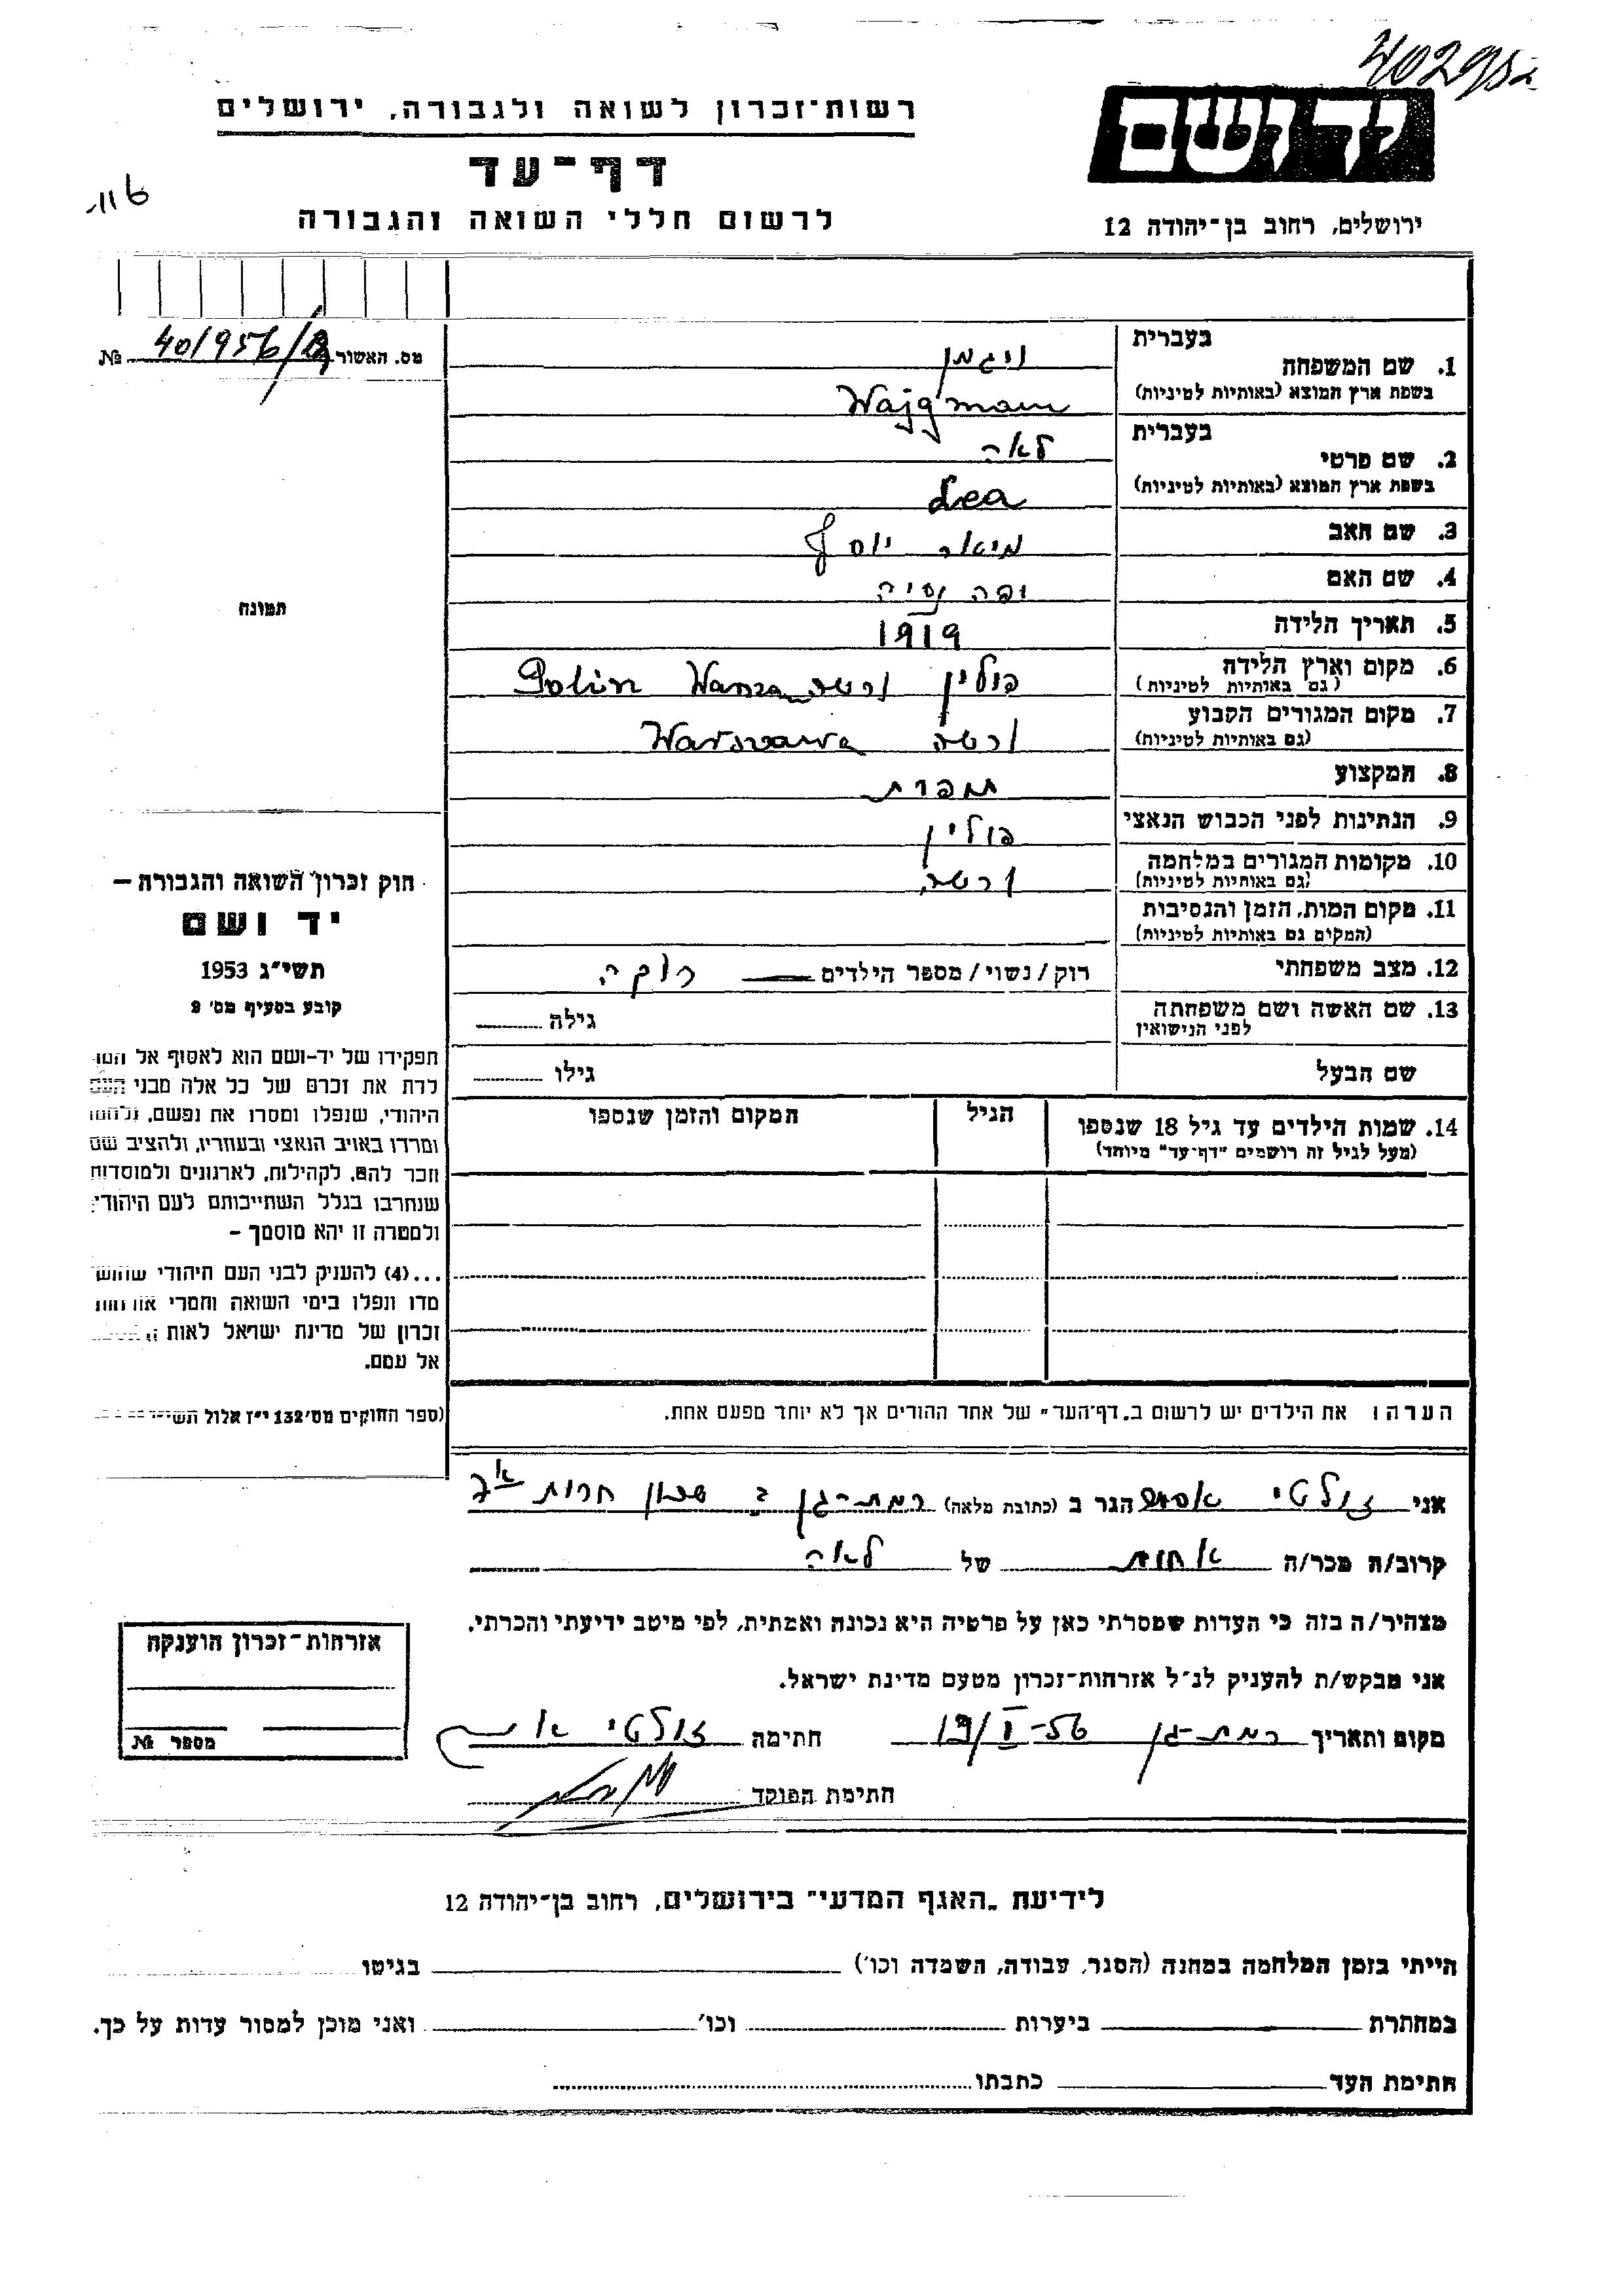 402952
רשות-זכרון לשואה ולגבורה, ירושלים
יד ושם
דף-עד
לרשום חללי השואה והגבורה
ירושלים, רחוב בן-יהודה 12
116
מס. האשור 40/956 №
בעברית
1. שם המשפחה ויגמן
בשפת ארץ המוצא (באותיות לטיניות) Wajgman
בעברית
2. שם פרטי לאה
בשפת ארץ המוצא (באותיות לטיניות) Lea
3. שם האב מיאר יוסף
4. שם האם יפה
5. תאריך הלידה 1919
6. מקום וארץ הלידה פולין ורשה Polin
(גם באותיות לטיניות)
7. מקום המגורים הקבוע ורשה Warszawa
(גם באותיות לטיניות)
8. המקצוע תפרת
9. הנתינות לפני הכבוש הנאצי פולין
10. מקומות המגורים במלחמה ורשה
(גם באותיות לטיניות)
11. מקום המות, הזמן והנסיבות
(המקום גם באותיות לטיניות)
12. מצב משפחתי רוק/נשוי/מספר הילדים רוקה
13. שם האשה ושם משפחתה גילה
לפני הנישואין
שם הבעל גילו
14. שמות הילדים עד גיל 18 שנספו הגיל המקום והזמן שנספו
(מעל לגיל זה רושמים "דף-עד" מיוחד)
הערה: את הילדים יש לרשום ב"דף-העד" של אחד ההורים אך לא יותר מפעם אחת.
תמונה
חוק זכרון השואה והגבורה –
יד ושם
תשי"ג 1953
קובע בסעיף מס' 2
תפקידו של יד-ושם הוא לאסוף אל
לדת את זכרם של כל אלה מבני העם
היהודי, שנפלו ומסרו את נפשם, נלחמו
ומרדו באויב הנאצי ובעוזריו, ולהציב שם
וזכר להם, לקהילות, לארגונים ולמוסדות
שנחרבו בגלל השתייכותם לעם היהודי;
ולמטרה זו יהא מוסמך –
...(4) להעניק לבני העם היהודי
מדו ונפלו בימי השואה והמרי אזרחות
זכרון של מדינת ישראל לאות
אל עמם.
(ספר החוקים מס' 132 י"ז אלול
אני זולטי הגר ב (כתובת מלאה) רמת-גן שכון חרות
קרוב/ה מכר/ה אחות של לאה
מצהיר/ה בזה כי העדות שמסרתי כאן על פרטיה היא נכונה ואמתית, לפי מיטב ידיעתי והכרתי.
אני מבקש/ת להעניק לנ"ל אזרחות-זכרון מטעם מדינת ישראל.
מקום ותאריך רמת-גן 19/I-56 חתימה זולטי
חתימת הפוקד
אזרחות-זכרון הוענקה
מספר №
לידיעת "האגף המדעי" בירושלים, רחוב בן-יהודה 12
הייתי בזמן המלחמה במחנה (הסגר, עבודה, השמדה וכו') בגיטו
במחתרת ביערות וכו' ואני מוכן למסור עדות על כך.
חתימת העד כתבתו